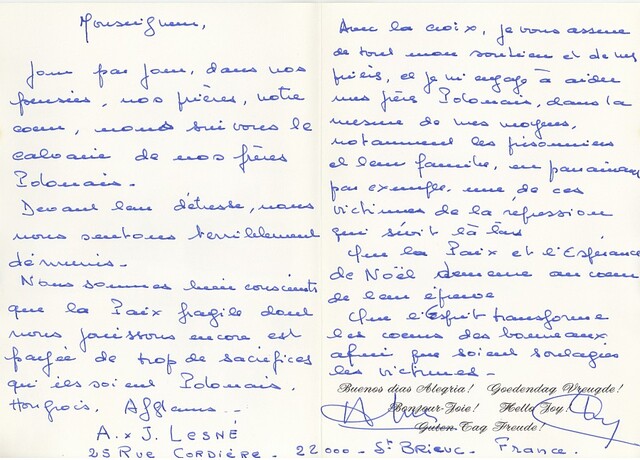 Monseigneur,
Jour par jour, dans nos
pensées, nos prières, notre
coeur, nous suivons le
calvaire de nos frères
Polonais.
Devant leur détresse, nous
nous sentons terriblement
démunis.
Nous sommes bien conscients
que la Paix fragile dont
nous jouissons encore est
payée de trop de sacrifices
qu'ils soient Polonais,
Hongrois, Afghans...
A. x J. LESNÉ
25 RUE CORDIÈRE. 22000 - St BRIEUC. France.
Avec la croix, je vous assure
de tout mon soutien et de mes
prières, et je m'engage à aider
mes frères Polonais, dans la
mesure de mes moyens,
notamment les prisonniers
et leur famille, en parrainant
par exemple une de ces
victimes de la répression
qui sévit là-bas
Que la Paix et l'Espérance
de Noël demeure au coeur
de leur épreuve
Que l'Esprit transforme
les coeurs des bourreaux
afin que soient soulagées
les victimes.
Buenos dias Alegria! Goedendag Vreugde!
Bonjour Joie! Hello Joy!
Guten Tag Freude!